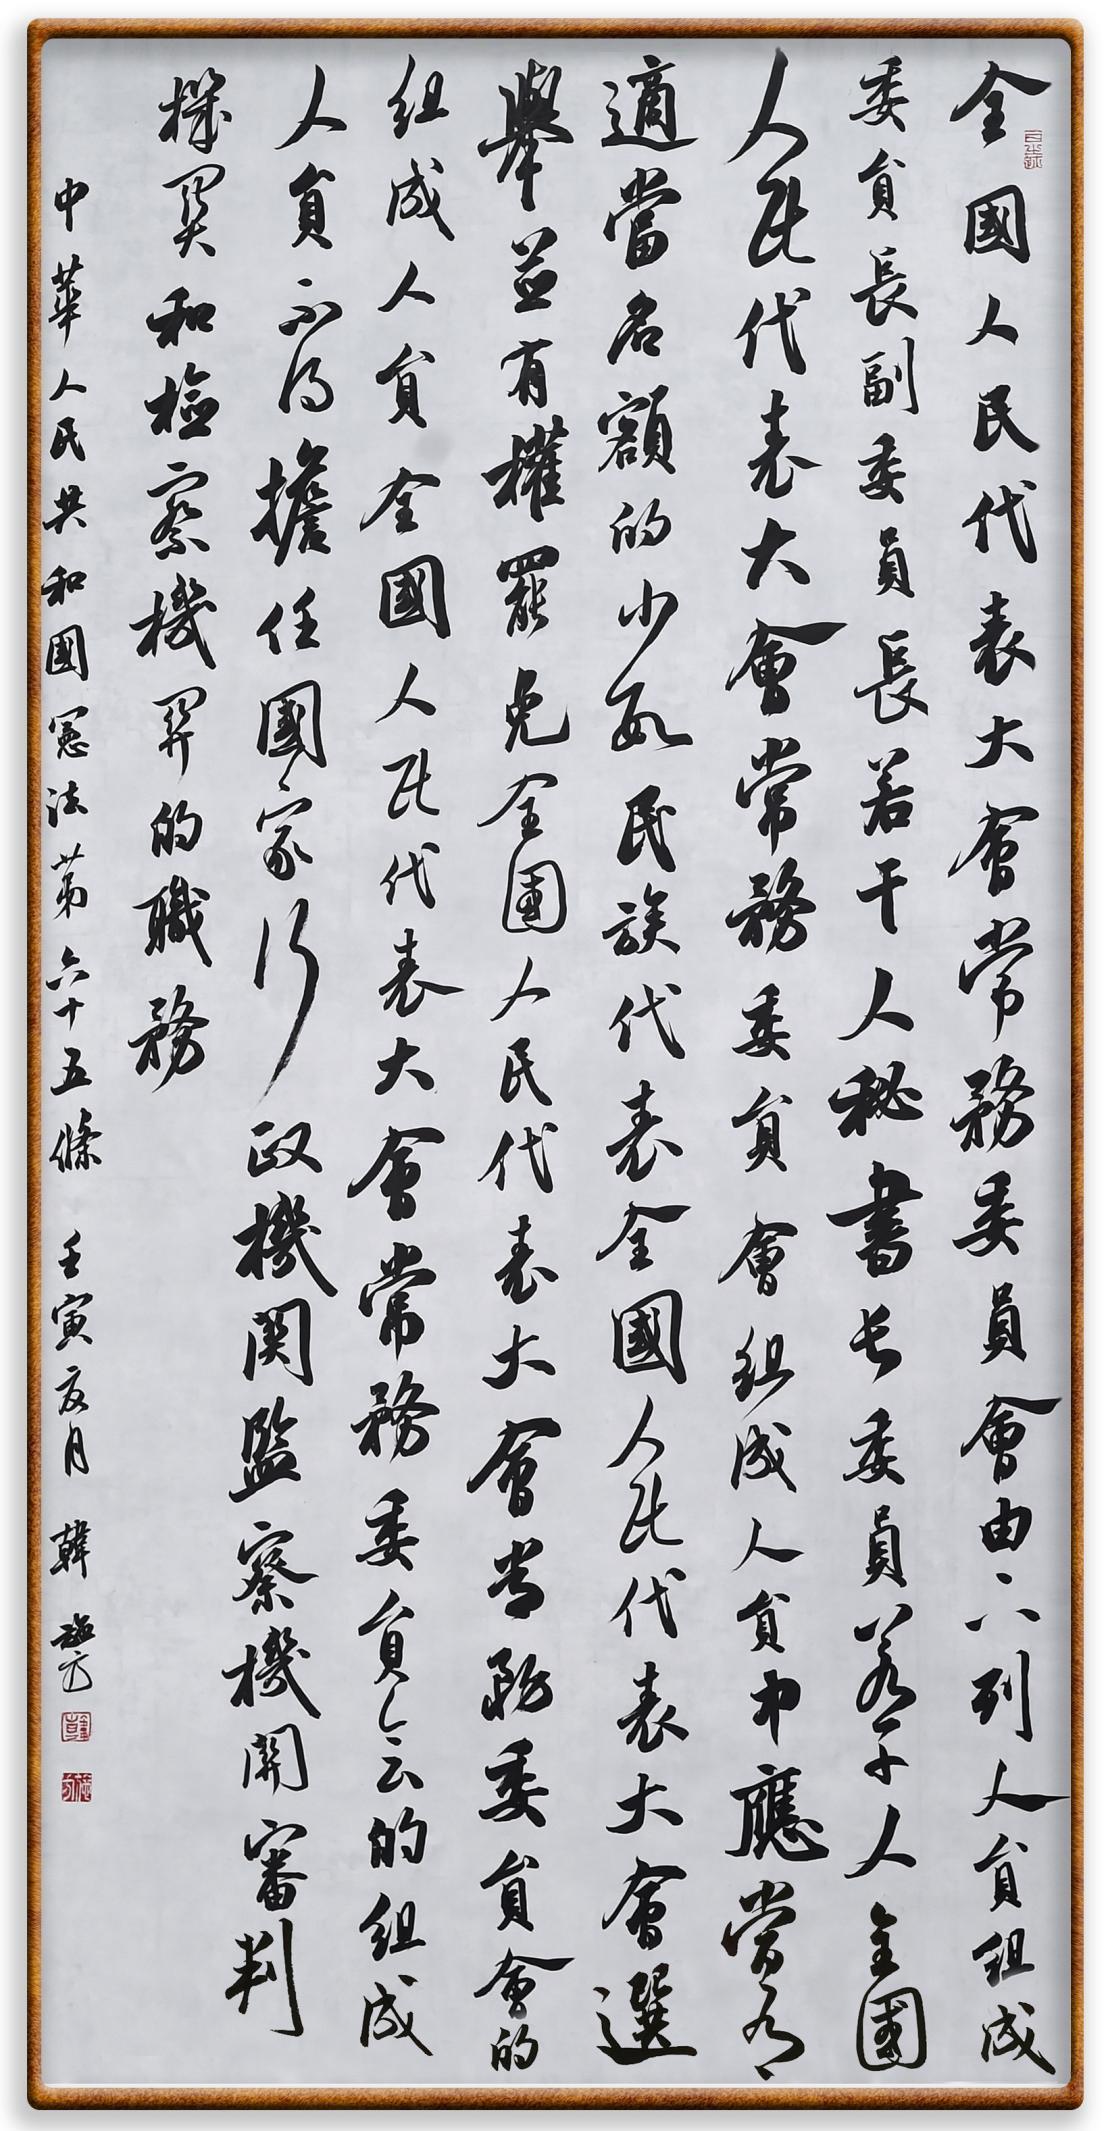 全國人民代表大會常務委員會由下列人員組成
委員長副委員長若干人秘書长委員若干人全國
人民代表大會常務委員會組成人員中應當有
適當名額的少數民族代表全國人民代表大會選
舉並有權罷免全國人民代表大會常務委員會的
組成人員全國人民代表大會常務委員会的組成
人員不得擔任國家行政機関監察機関審判
機関和檢察機関的職務
中華人民共和國憲法第六十五條 壬寅夏月 韓